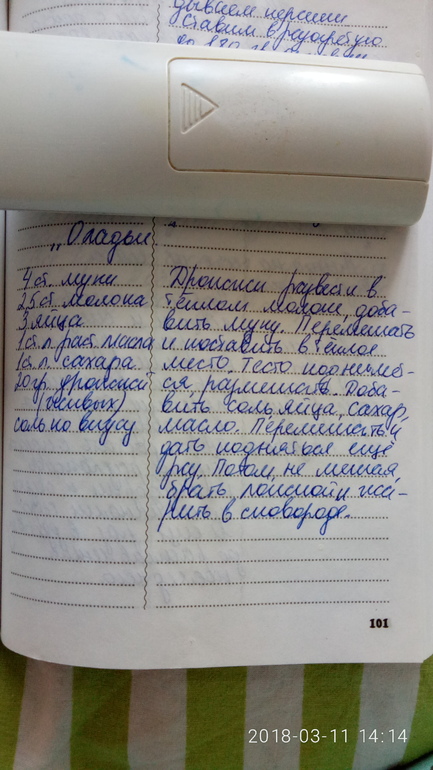 дываем нершин
ставим в разогретую
до 180
„Оладьи
4 ст. муки
2,5 ст. молока
3 яйца
1 ст. л. раст. масла
1 ст. л. сахара
20 гр. дрожжей
(живых)
соль по вкусу
Дрожжи развести в
тёплом молоке, доба-
вить муку. Перемешать
и поставить в тёплое
место. Тесто поднимет-
ся, размешать. Доба-
вить соль, яйца, сахар,
масло. Перемешать и
дать подняться ещё
раз. Потом, не мешая
брать ложкой и жа-
рить в сковороде.
101
2018-03-11 14:14